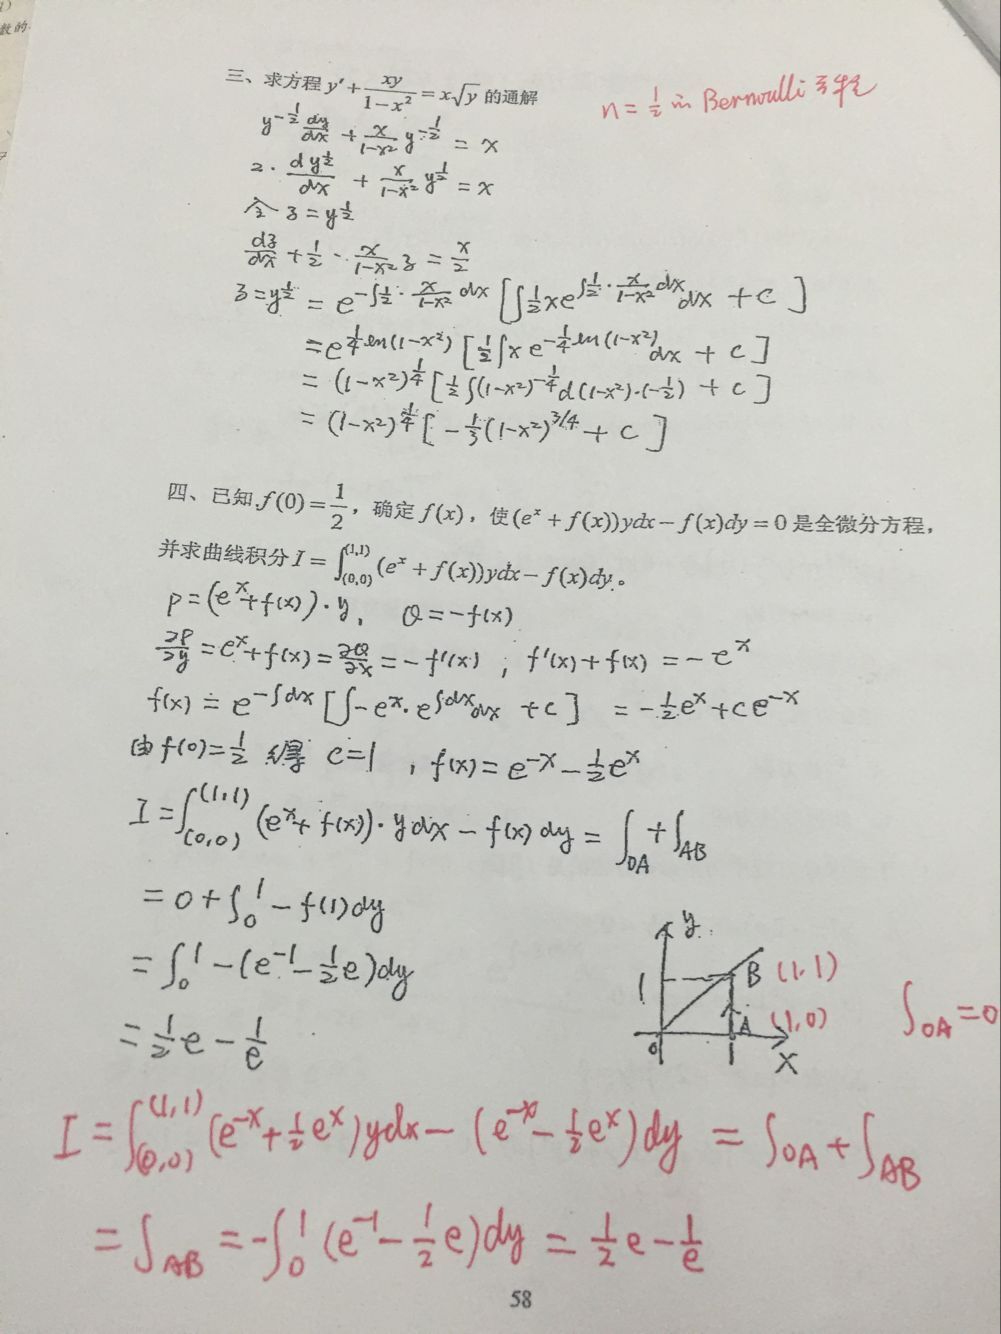 三、求方程 y′ + xy/(1−x²) = x√y 的通解
n = 1/2 的 Bernoulli 方程
y^(-1/2) dy/dx + x/(1-x²) y^(1/2) = x
2 · dy^(1/2)/dx + x/(1-x²) y^(1/2) = x
令 z = y^(1/2)
dz/dx + 1/2 · x/(1-x²) z = x/2
z = y^(1/2) = e^(-∫1/2 · x/(1-x²) dx) [∫1/2 x e^(∫1/2 · x/(1-x²) dx) dx + c]
= e^(1/4 ln(1-x²)) [1/2 ∫x e^(-1/4 ln(1-x²)) dx + c]
= (1-x²)^(1/4) [1/2 ∫(1-x²)^(-1/4) d(1-x²)·(-1/2) + c]
= (1-x²)^(1/4) [-1/3 (1-x²)^(3/4) + c]
四、已知 f(0) = 1/2, 确定 f(x), 使 (e^x + f(x))ydx − f(x)dy = 0 是全微分方程,
并求曲线积分 I = ∫_(0,0)^(1,1) (e^x + f(x))ydx − f(x)dy。
P = (e^x + f(x))·y, Q = -f(x)
∂P/∂y = e^x + f(x) = ∂Q/∂x = -f′(x) ; f′(x) + f(x) = -e^x
f(x) = e^(-∫dx) [∫-e^x · e^(∫dx) dx + c] = -1/2 e^x + ce^(-x)
由 f(0) = 1/2 得 c = 1, f(x) = e^(-x) - 1/2 e^x
I = ∫_(0,0)^(1,1) (e^x + f(x))·ydx - f(x)dy = ∫_OA + ∫_AB
= 0 + ∫_0^1 - f(1)dy
= ∫_0^1 -(e^(-1) - 1/2 e)dy
= 1/2 e - 1/e
y
1
B (1,1)
A (1,0)
0
1
X
∫_OA = 0
I = ∫_(0,0)^(1,1) (e^(-x) + 1/2 e^x)ydx - (e^(-x) - 1/2 e^x)dy = ∫_OA + ∫_AB
= ∫_AB = -∫_0^1 (e^(-1) - 1/2 e)dy = 1/2 e - 1/e
58